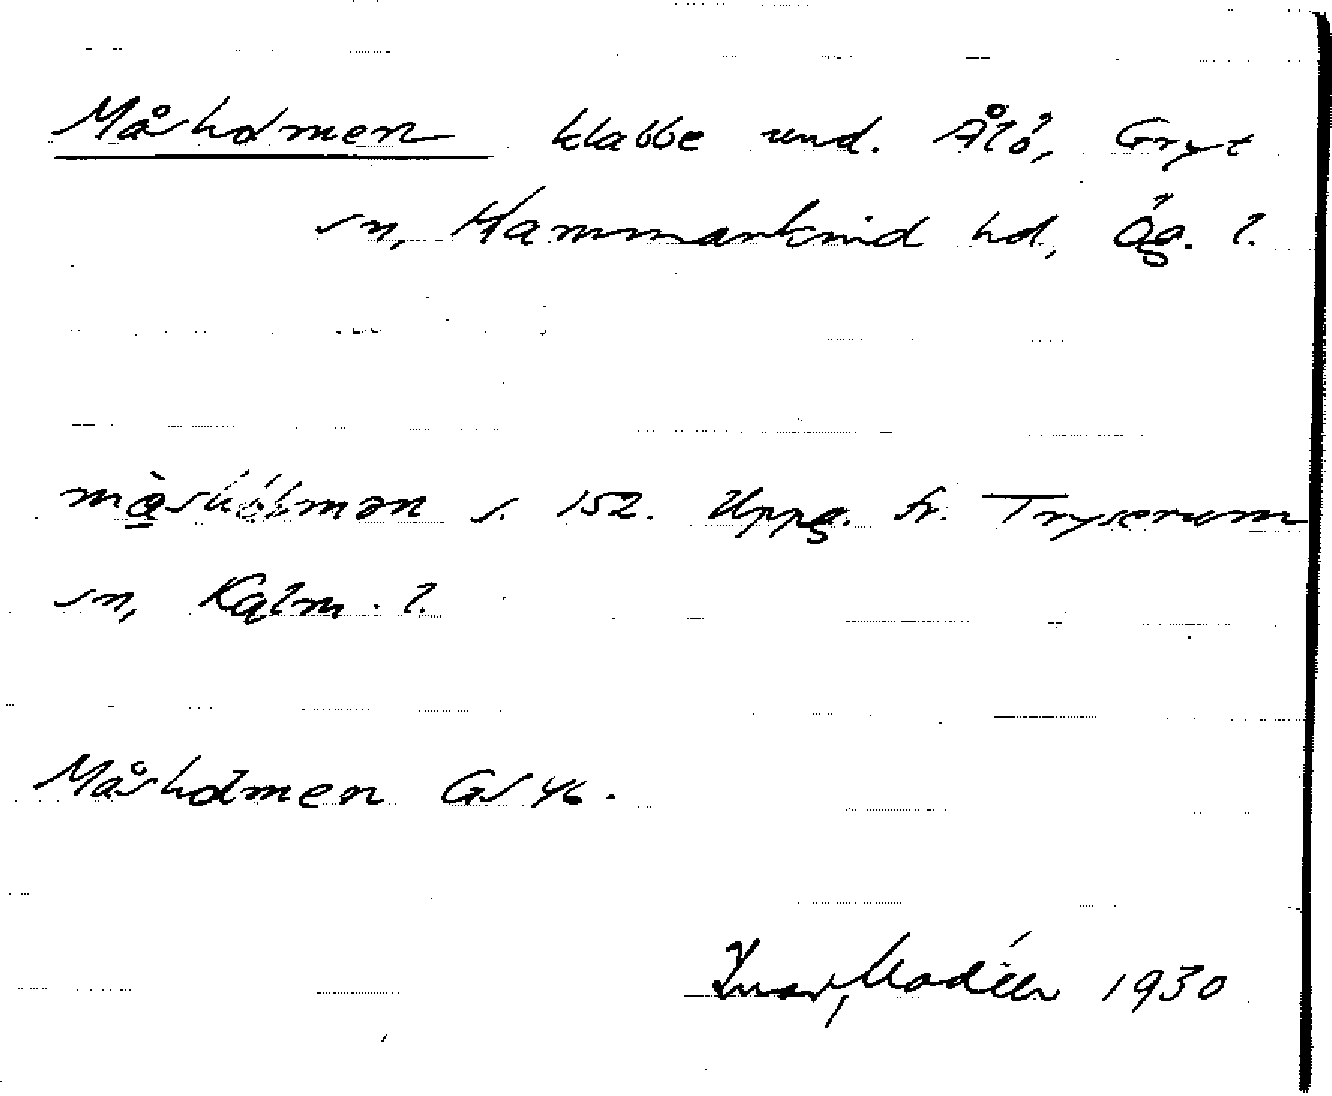 Måsholmen klabbe und. Ålö, Gryt
sn, Hammarkind hd, Ög. l.
s. 152. Uppg. fr. Tryserum
sn, Kalm. l.
Måsholmen GS 46.
Ivar Modéer 1930